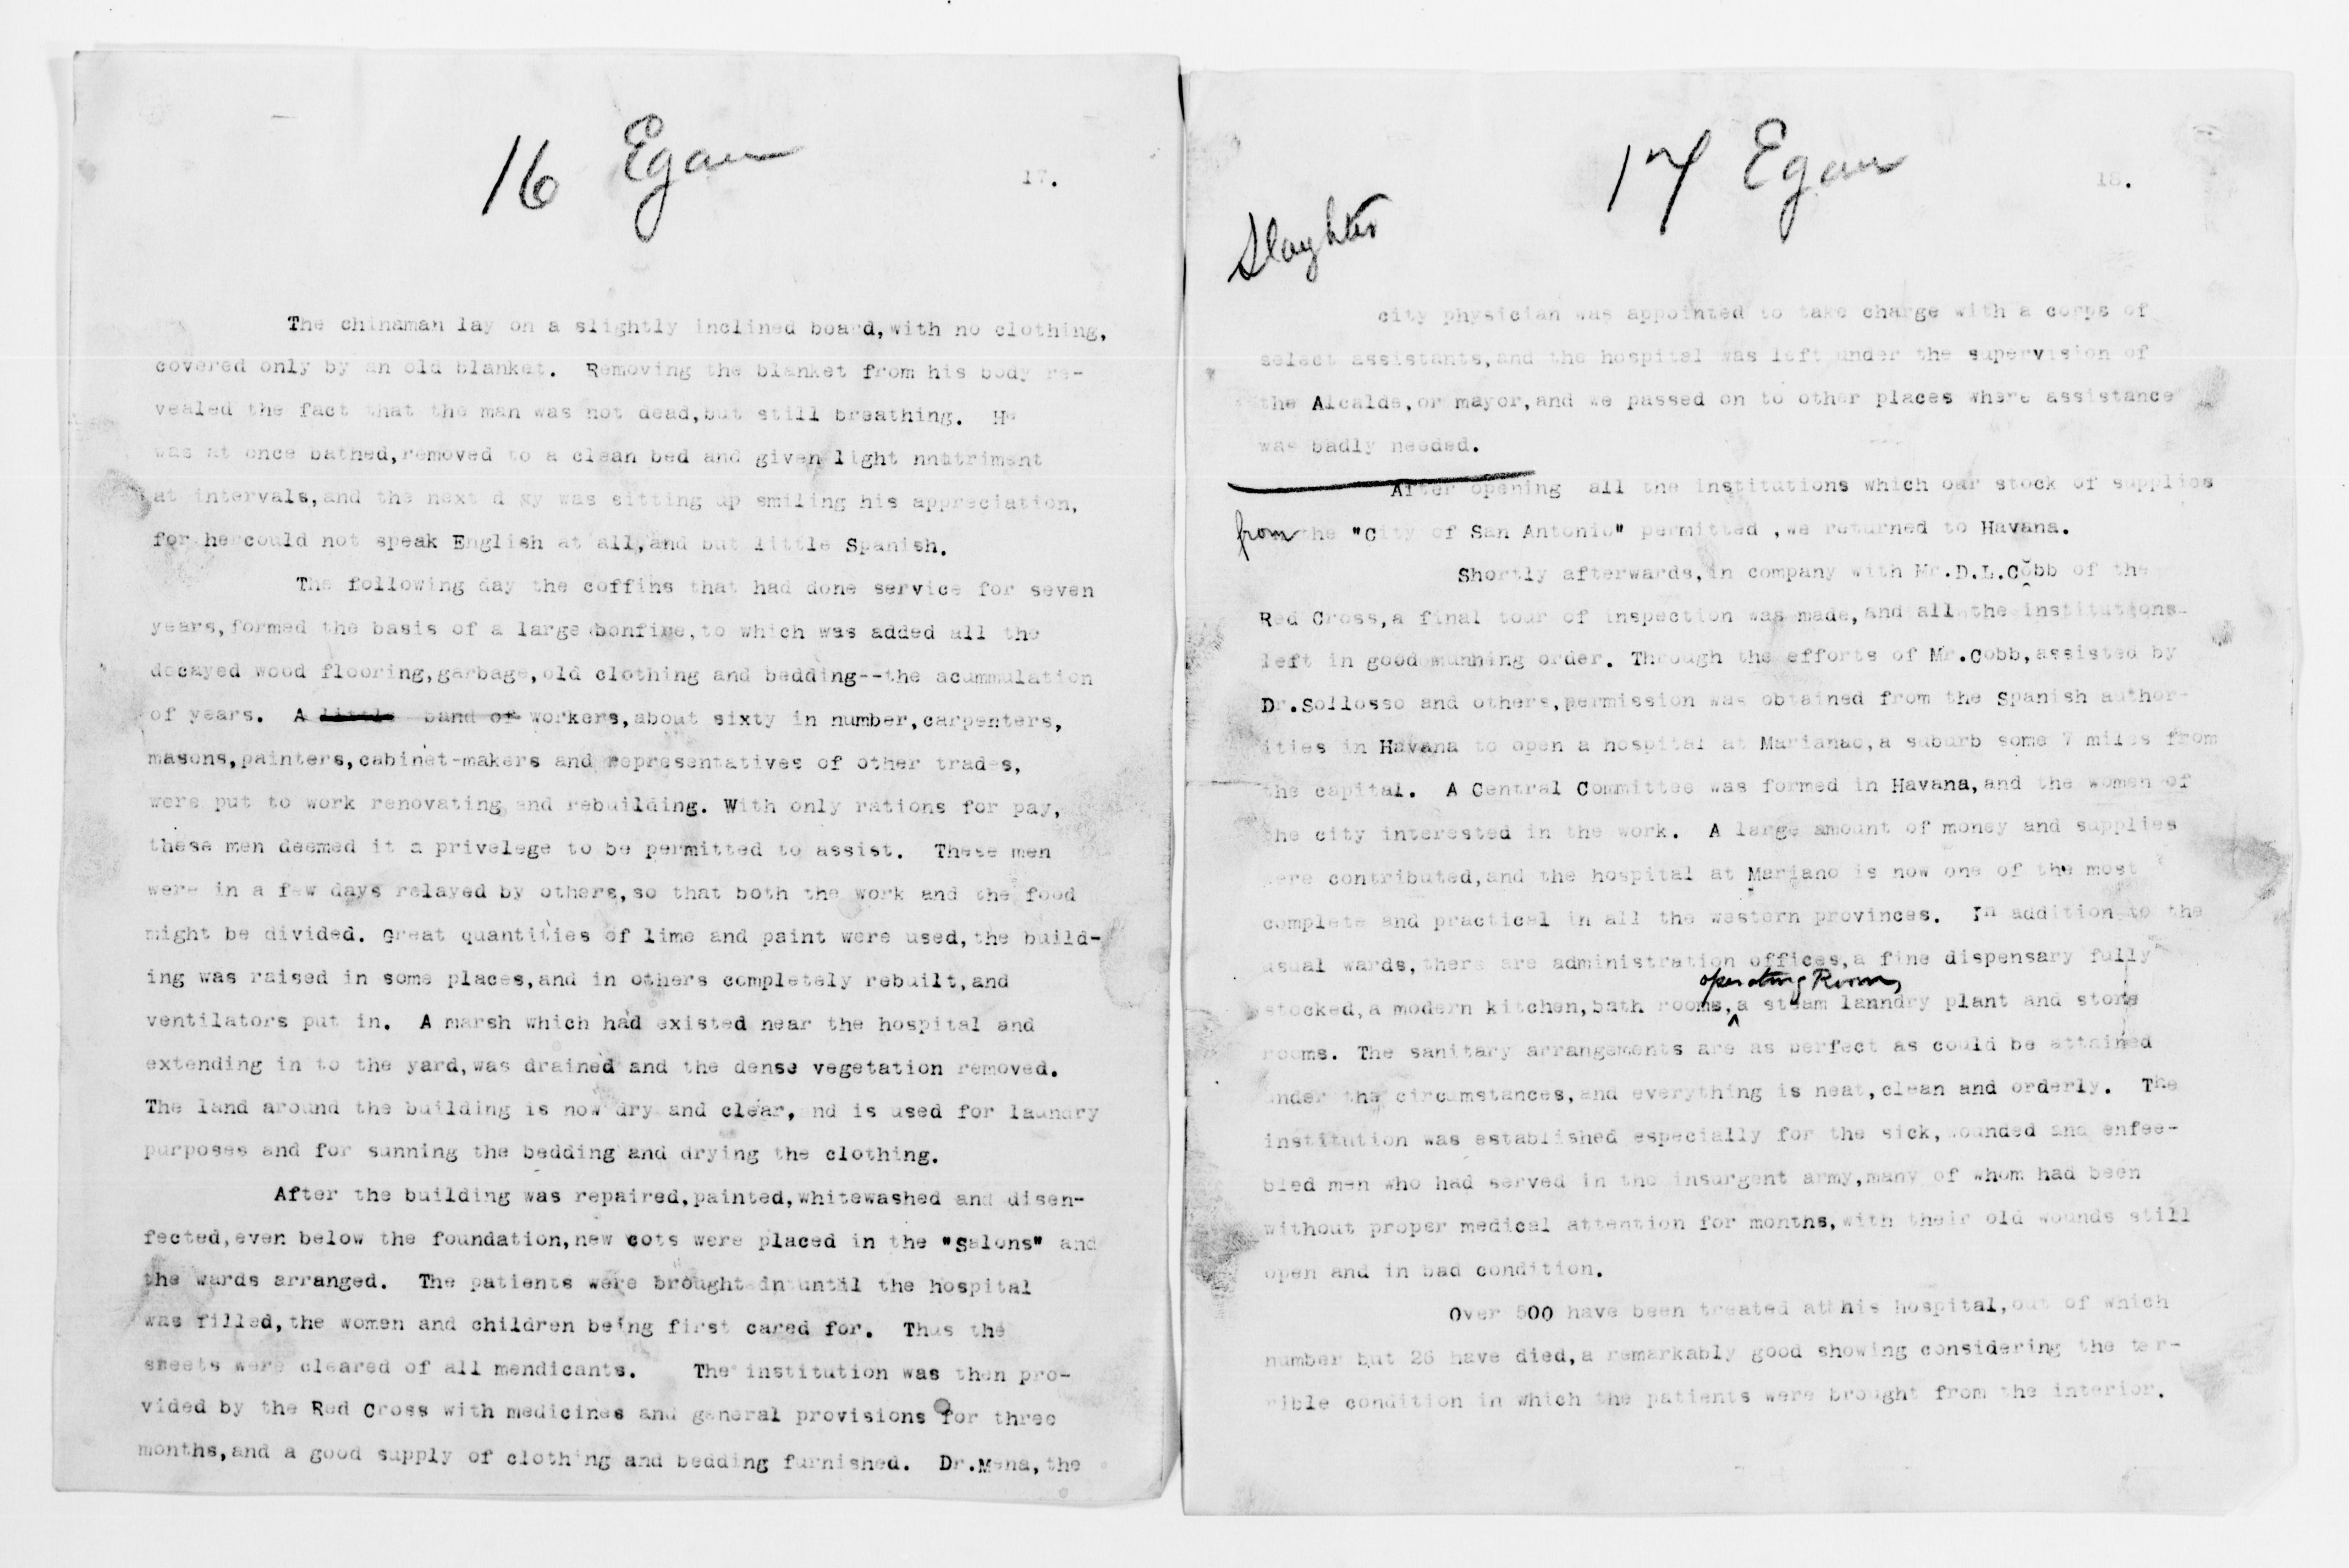 16 Egan
17.
The chinaman lay on a slightly inclined board,with no clothing,
covered only by an old blanket. Removing the blanket from his body re-
vealed the fact that the man was not dead,but still breathing. He
was at once bathed,removed to a clean bed and given light nnttriment
at intervals,and the next d ay was sitting up smiling his appreciation,
for he could not speak English at all,and but little Spanish.
The following day the coffins that had done service for seven
years,formed the basis of a large bonfire,to which was added all the
decayed wood flooring,garbage,old clothing and bedding--the acummulation
of years. A little band of workers,about sixty in number,carpenters,
masons,painters,cabinet-makers and representatives of other trades,
were put to work renovating and rebuilding. With only rations for pay,
these men deemed it a privelege to be permitted to assist. These men
were in a few days relayed by others,so that both the work and the food
might be divided. Great quantities of lime and paint were used,the build-
ing was raised in some places,and in others completely rebuilt,and
ventilators put in. A marsh which had existed near the hospital and
extending in to the yard,was drained and the dense vegetation removed.
The land around the building is now dry and clear, nd is used for laundry
purposes and for sunning the bedding and drying the clothing.
After the building was repaired,painted,whitewashed and disen-
fected,even below the foundation,new cots were placed in the "Salons" and
the wards arranged. The patients were brought in until the hospital
was filled,the women and children being first cared for. Thus the
sreets were cleared of all mendicants. The institution was then pro-
vided by the Red Cross with medicines and general provisions for three
months,and a good supply of clothing and bedding furnished. Dr.Mena,the
17 Egan
18.
Slaughter
city physician was appointed to take charge with a corps of
select assistants,and the hospital was left under the supervision of
the Alcalde,or mayor,and we passed on to other places where assistance
was badly needed.
After opening all the institutions which our stock of supplies
from the "City of San Antonio" permitted ,we returned to Havana.
Shortly afterwards,in company with Mr.D.L.Cobb of the
Red Cross,a final tour of inspection was made,and all the institutions
left in good munning order. Through the efforts of Mr.Cobb,assisted by
Dr.Sollosso and others,permission was obtained from the Spanish author-
ities in Havana to open a hospital at Marianao,a suburb some 7 miles from
the capital. A Central Committee was formed in Havana,and the women of
the city interested in the work. A large amount of money and supplies
were contributed,and the hospital at Mariano is now one of the most
complete and practical in all the western provinces. In addition to the
usual wards,there are administration offices,a fine dispensary fully
operating Room,
stocked,a modern kitchen,bath rooms,a steam lanndry plant and store
rooms. The sanitary arrangements are as perfect as could be attained
under the circumstances,and everything is neat,clean and orderly. The
institution was established especially for the sick,wounded and enfee-
bled men who had served in the insurgent army,many of whom had been
without proper medical attention for months,with their old wounds still
open and in bad condition.
Over 500 have been treated at his hospital,out of which
number but 26 have died,a remarkably good showing considering the ter-
rible condition in which the patients were brought from the interior.